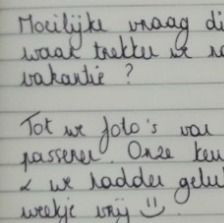 Moeilijke vraag di
waar trekken we na
vakantie ?
Tot we foto's van
passeren. Onze keu
& we hadden geluk
weekje vrij :)